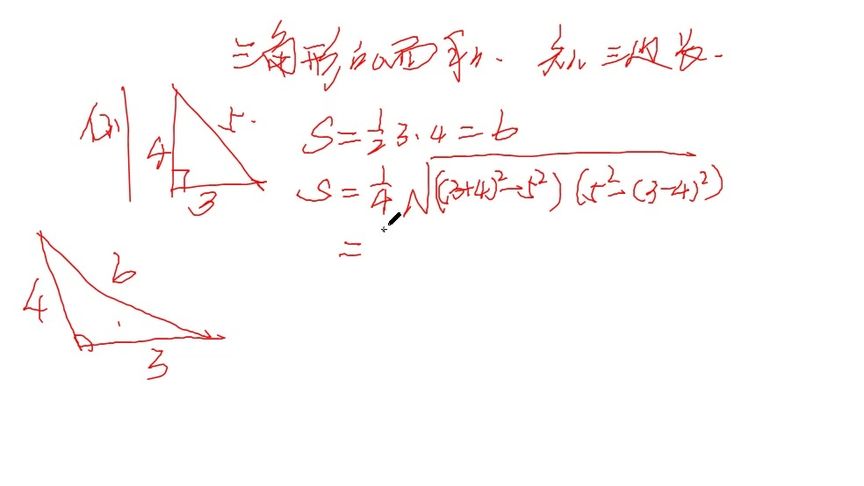 三角形的面积. 知三边长.
例
4
5.
3
S = 1/2 3·4 = 6
S = 1/4 √((3+4)²-5²)(5²-(3-4)²)
=
4
6
3